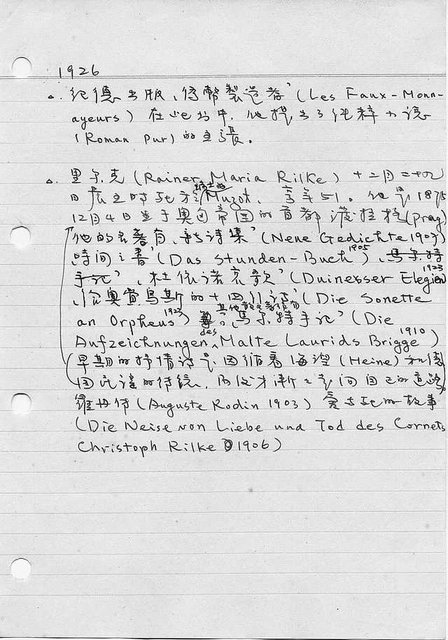 1926
紀德出版「偽幣製造者」(Les Faux-Monn-
ayeurs) 在此書中，他提出了純粹小說
(Roman pur) 的主張。
里尔克 (Rainer Maria Rilke) 十二月二十九
日 Muzot，享年51。他是1875
12月4日生于奥国帝国的首都 波拉格 (Prag)
他的名著有「新詩集」(Neue Gedichte 1907)
「時間之書」(Das Stunden-Buch) 1905 馬尔特
手记」、「杜依诺哀歌」(Duinesser Elegien 1923
「給奥費烏斯的十四行诗」(Die Sonette
an Orpheus) 1923 「馬尔特手记」(Die
Aufzeichnungen des Malte Laurids Brigge) 1910
(早期的抒情诗是因循着海涅 (Heine) 和德
国民谣的传统，而後才漸漸走向自己的道路
羅丹传 (Auguste Rodin 1903) 的故事
(Die Neise von Liebe und Tod des Cornets
Christoph Rilke 1906)